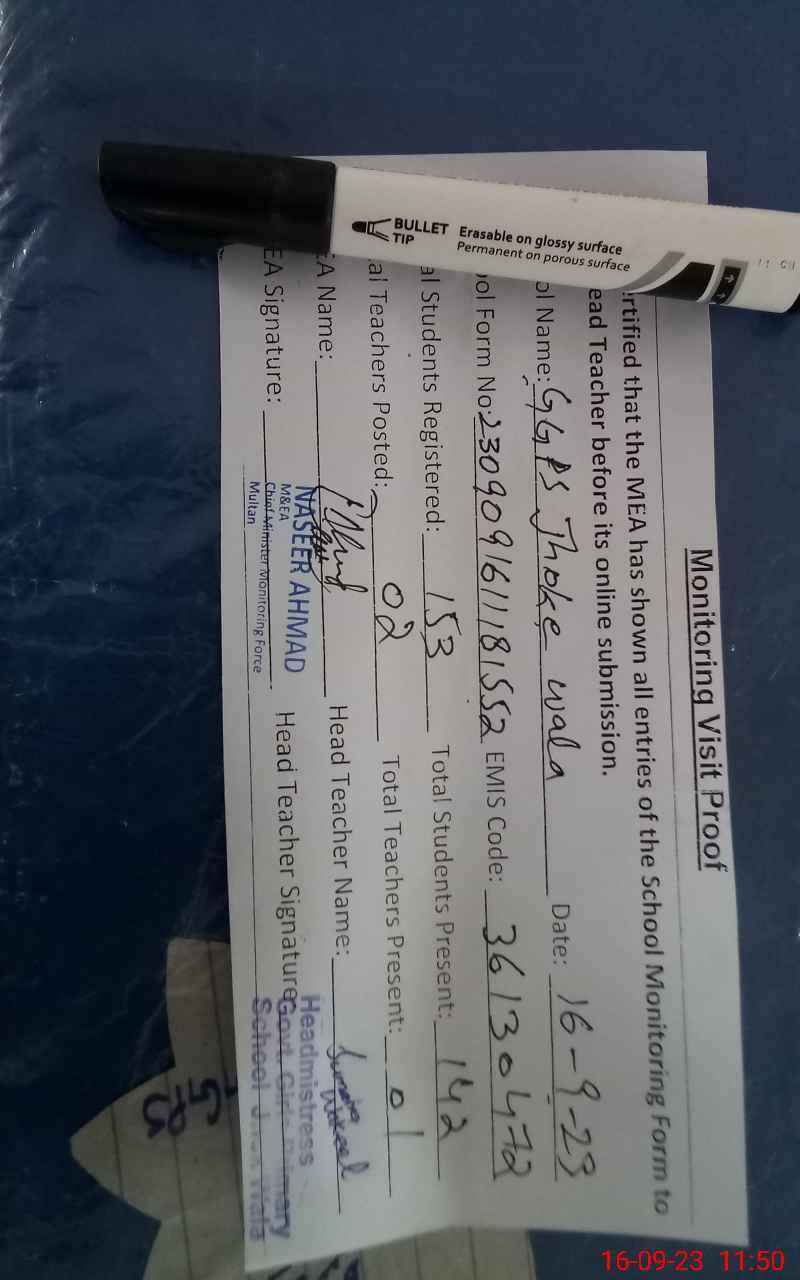 Monitoring Visit Proof
ertified that the MEA has shown all entries of the School Monitoring Form to
ead Teacher before its online submission.
ol Name: GGPS Jhoke wala Date: 16-9-23
ool Form No: 230909161181552 EMIS Code: 36130472
al Students Registered: 153 Total Students Present: 142
al Teachers Posted: 02 Total Teachers Present: 01
EA Name: Head Teacher Name:
EA Signature: Head Teacher Signature:
NASEER AHMAD
M&EA
Chief Minister Monitoring Force
Multan
Headmistress
Govt. Girls Primary
School Wala
BULLET
TIP
Erasable on glossy surface
Permanent on porous surface
16-09-23 11:50